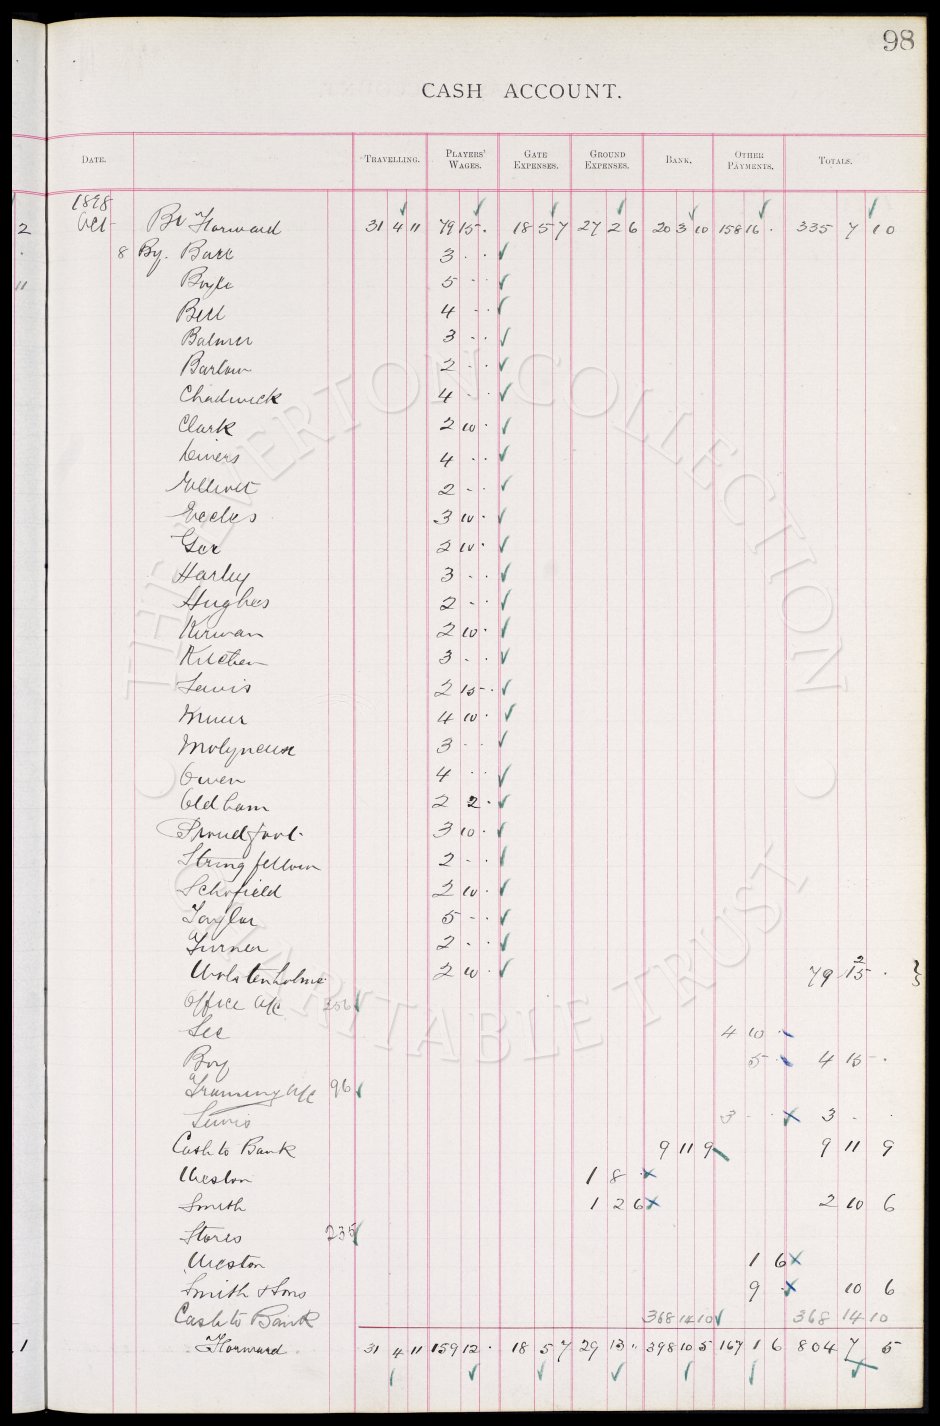 98
CASH ACCOUNT.
DATE. TRAVELLING. PLAYERS' WAGES. GATE EXPENSES. GROUND EXPENSES. BANK. OTHER PAYMENTS. TOTALS.
1898
Oct Bt Forward 31 4 11 79 15 . 18 5 7 27 2 6 20 3 10 158 16 . 335 7 10
2
8 By. Barr 3 . .
11 Boyle 5 . .
Bell 4 . .
Balmer 3 . .
Barlow 2 . .
Chadwick 4 . .
Clark 2 10 .
Divers 4 . .
2 . .
Eccles 3 10 .
Gee 2 10 .
Harley 3 . .
Hughes 2 . .
Kirwan 2 10 .
Kitchen 3 . .
Lewis 2 15 .
Muir 4 10 .
Molyneux 3 . .
Owen 4 . .
Oldham 2 2 .
Proudfoot 3 10 .
Stringfellow 2 . .
Schofield 2 10 .
Taylor 5 . .
Turner 2 . .
Wolstenholme 2 10 . 79 12 .
Office A/C 256
Sec 4 10 .
Boy 5 . 4 15 .
Training A/C 96
Lewis 3 . . 3 . .
Cash to Bank 9 11 9 9 11 9
Weston 1 8 .
Smith 1 2 6 2 10 6
Stores 235
Weston 1 6
Smith & Sons 9 . 10 6
Cash to Bank 368 14 10 368 14 10
1 Forward 31 4 11 159 12 . 18 5 7 29 13 " 398 10 5 167 1 6 804 7 5
THE EVERTON COLLECTION
CHARITABLE TRUST